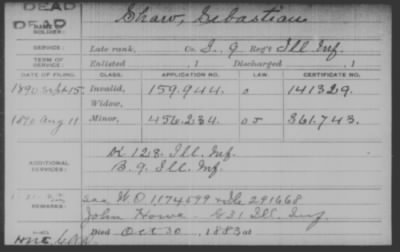 DEAD
DEAD
NAME OF SOLDIER: Shaw, Sebastian
SERVICE: Late rank, Co. I, 9 Reg't Ill. Inf.
TERM OF SERVICE: Enlisted , 1 Discharged , 1
DATE OF FILING. CLASS. APPLICATION NO. LAW. CERTIFICATE NO.
1890 Sept 15 Invalid, 159.944 141329
Widow,
1890 Aug 11 Minor, 456.234 361.743
ADDITIONAL SERVICES: K 128 Ill. Inf.
B. 9 Ill. Inf.
REMARKS: see W.O. 1174599 291668
John Howe G 31 Ill. Inf.
Died Oct 30, 1883 at